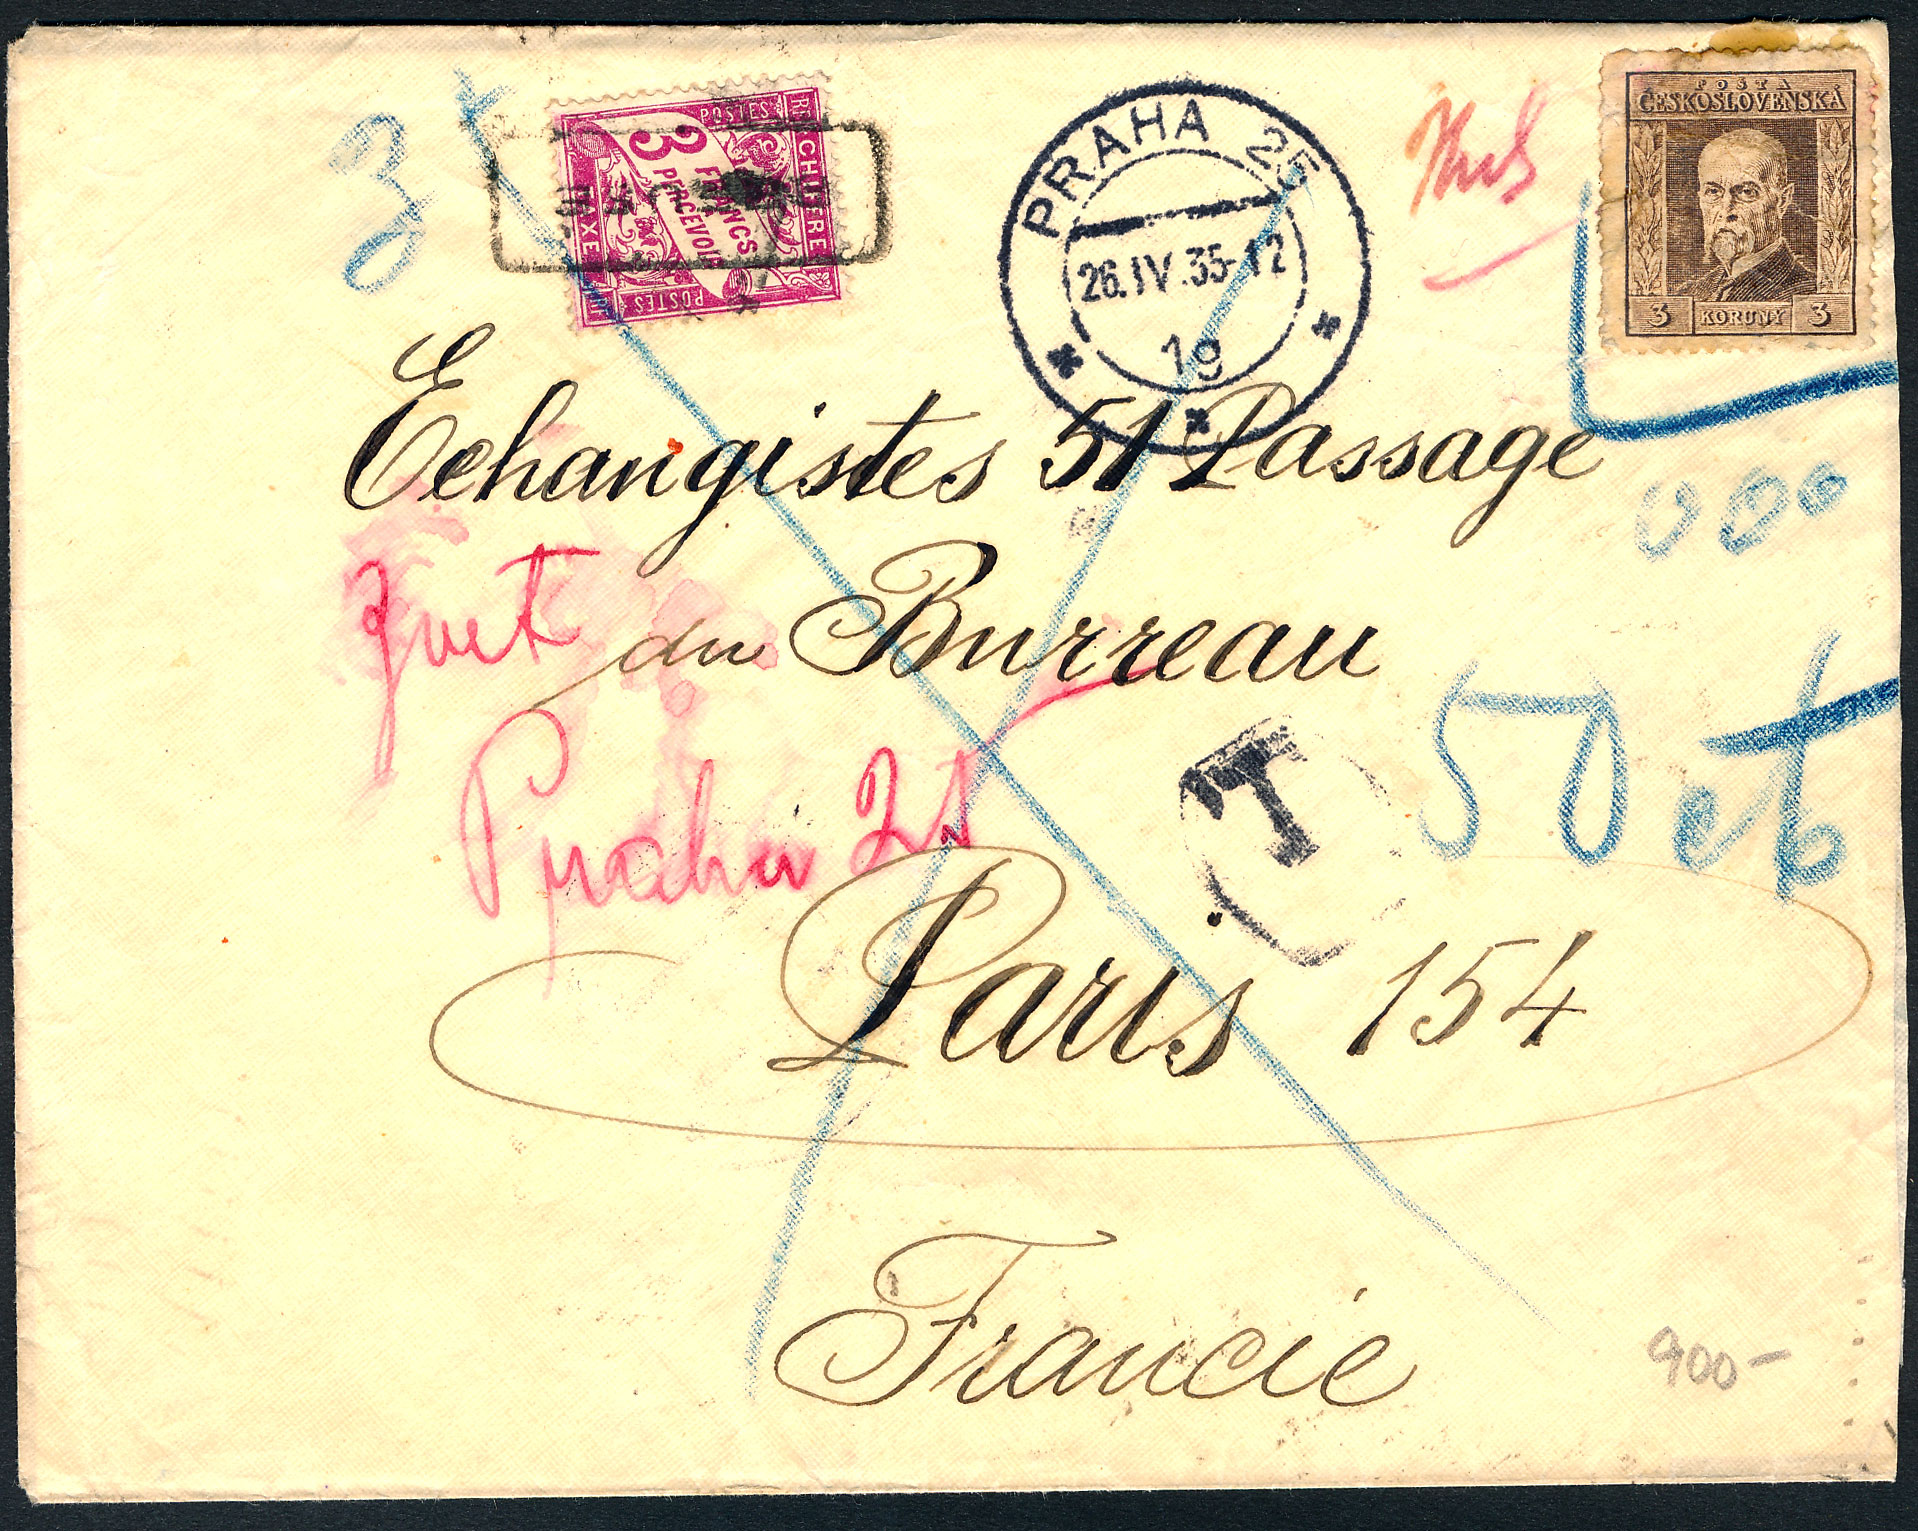 POŠTA
ČESKOSLOVENSKÁ
3 KORUNY 3
POSTES
CHIFFRE
3
FRANCS
A
PERCEVOIR
TAXE
POSTES
3
PRAHA 25
26.IV.35-12
1g
Echangistes 51 Passage
du Burreau
Paris 154
Francie
zpět
Praha 25
T
000
50 ct
900-